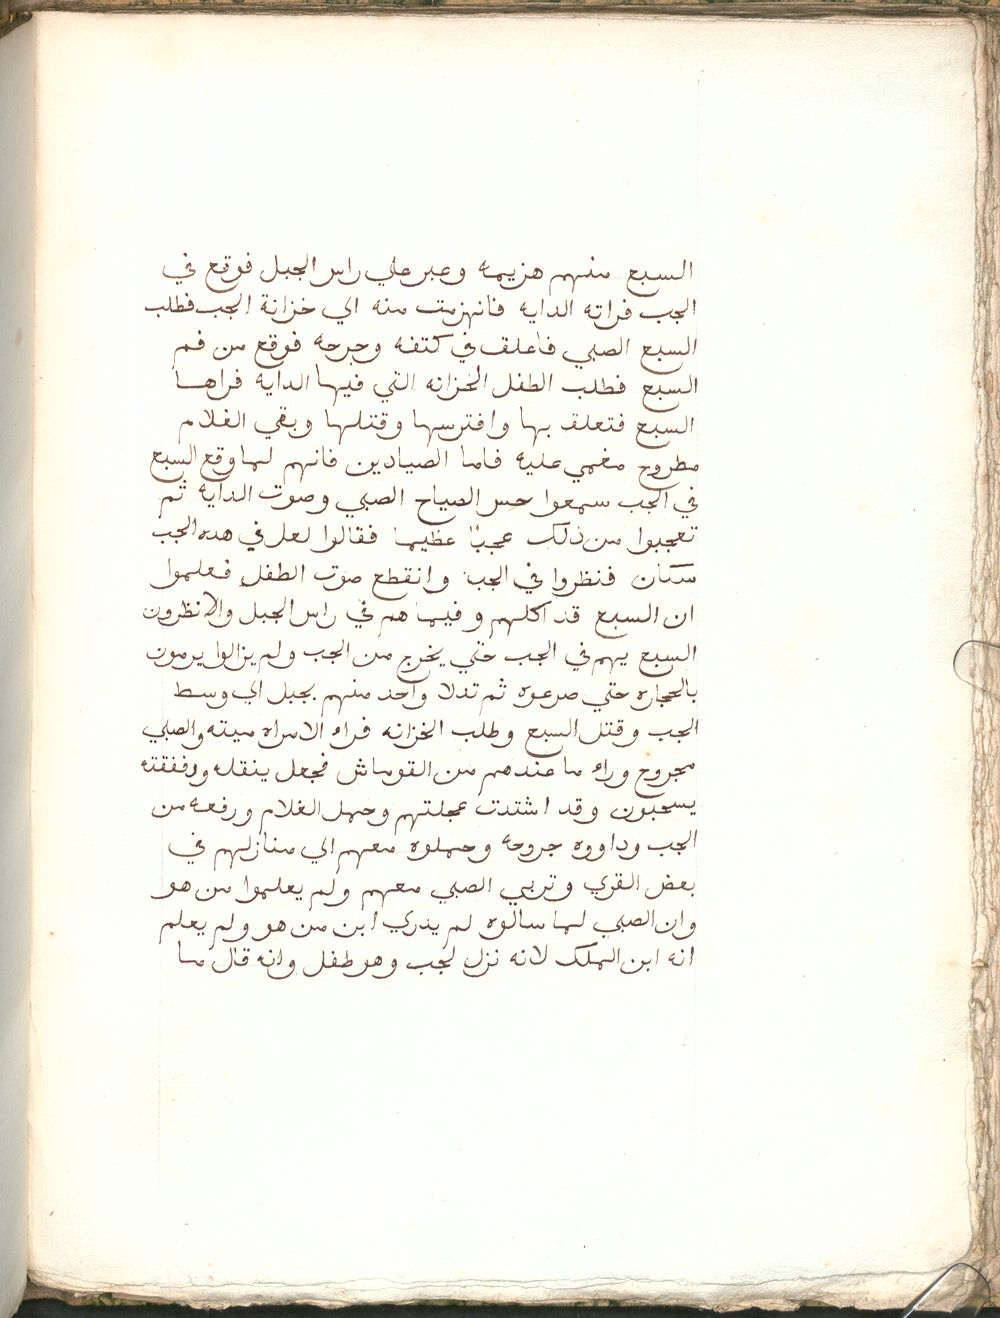 السبع منهم هزيمه وعبر علي راس الجبل فوقع في
الجب فراته الدايه فانهزمت منه الي خزانة الجب فطلب
السبع الصبي فاعلق في كتفه وجرحه فوقع من فم
السبع فطلب الطفل الخزانه التي فيها الدايه فراها
السبع فتعلق بها وافترسها وقتلها وبقي الغلام
مطروح مغمي عليه فاما الصيادين فانهم لما وقع السبع
في الجب سمعوا حس الصياح الصبي وصوت الدايه ثم
تعجبوا من ذلك عجبًا عظيما فقالوا لعل في هده الجب
سكان فنظروا في الجب وانقطع صوت الطفل فعلموا
ان السبع قد اكلهم وفيما هم في راس الجبل والانظرون
السبع يهم في الجب حتي يخرج من الجب ولم يزالوا يرمون
بالحجاره حتي صرعوه ثم تدلا واحد منهم بحبل الي وسط
الجب وقتل السبع وطلب الخزانه فراء الامراه ميته والصبي
مجروح وراء ما عندهم من القوماش فجعل ينقله ورفقته
يسحبون وقد اشتدت عجلتهم وحمل الغلام ورفعه من
الجب وداووه جروحه وحملوه معهم الي منازلهم في
بعض القري وتربي الصبي معهم ولم يعلموا من هو
وان الصبي لما سالوه لم يدري ابن من هو ولم يعلم
انه ابن الملك لانه نزل لجب وهو طفل وانه قال ما